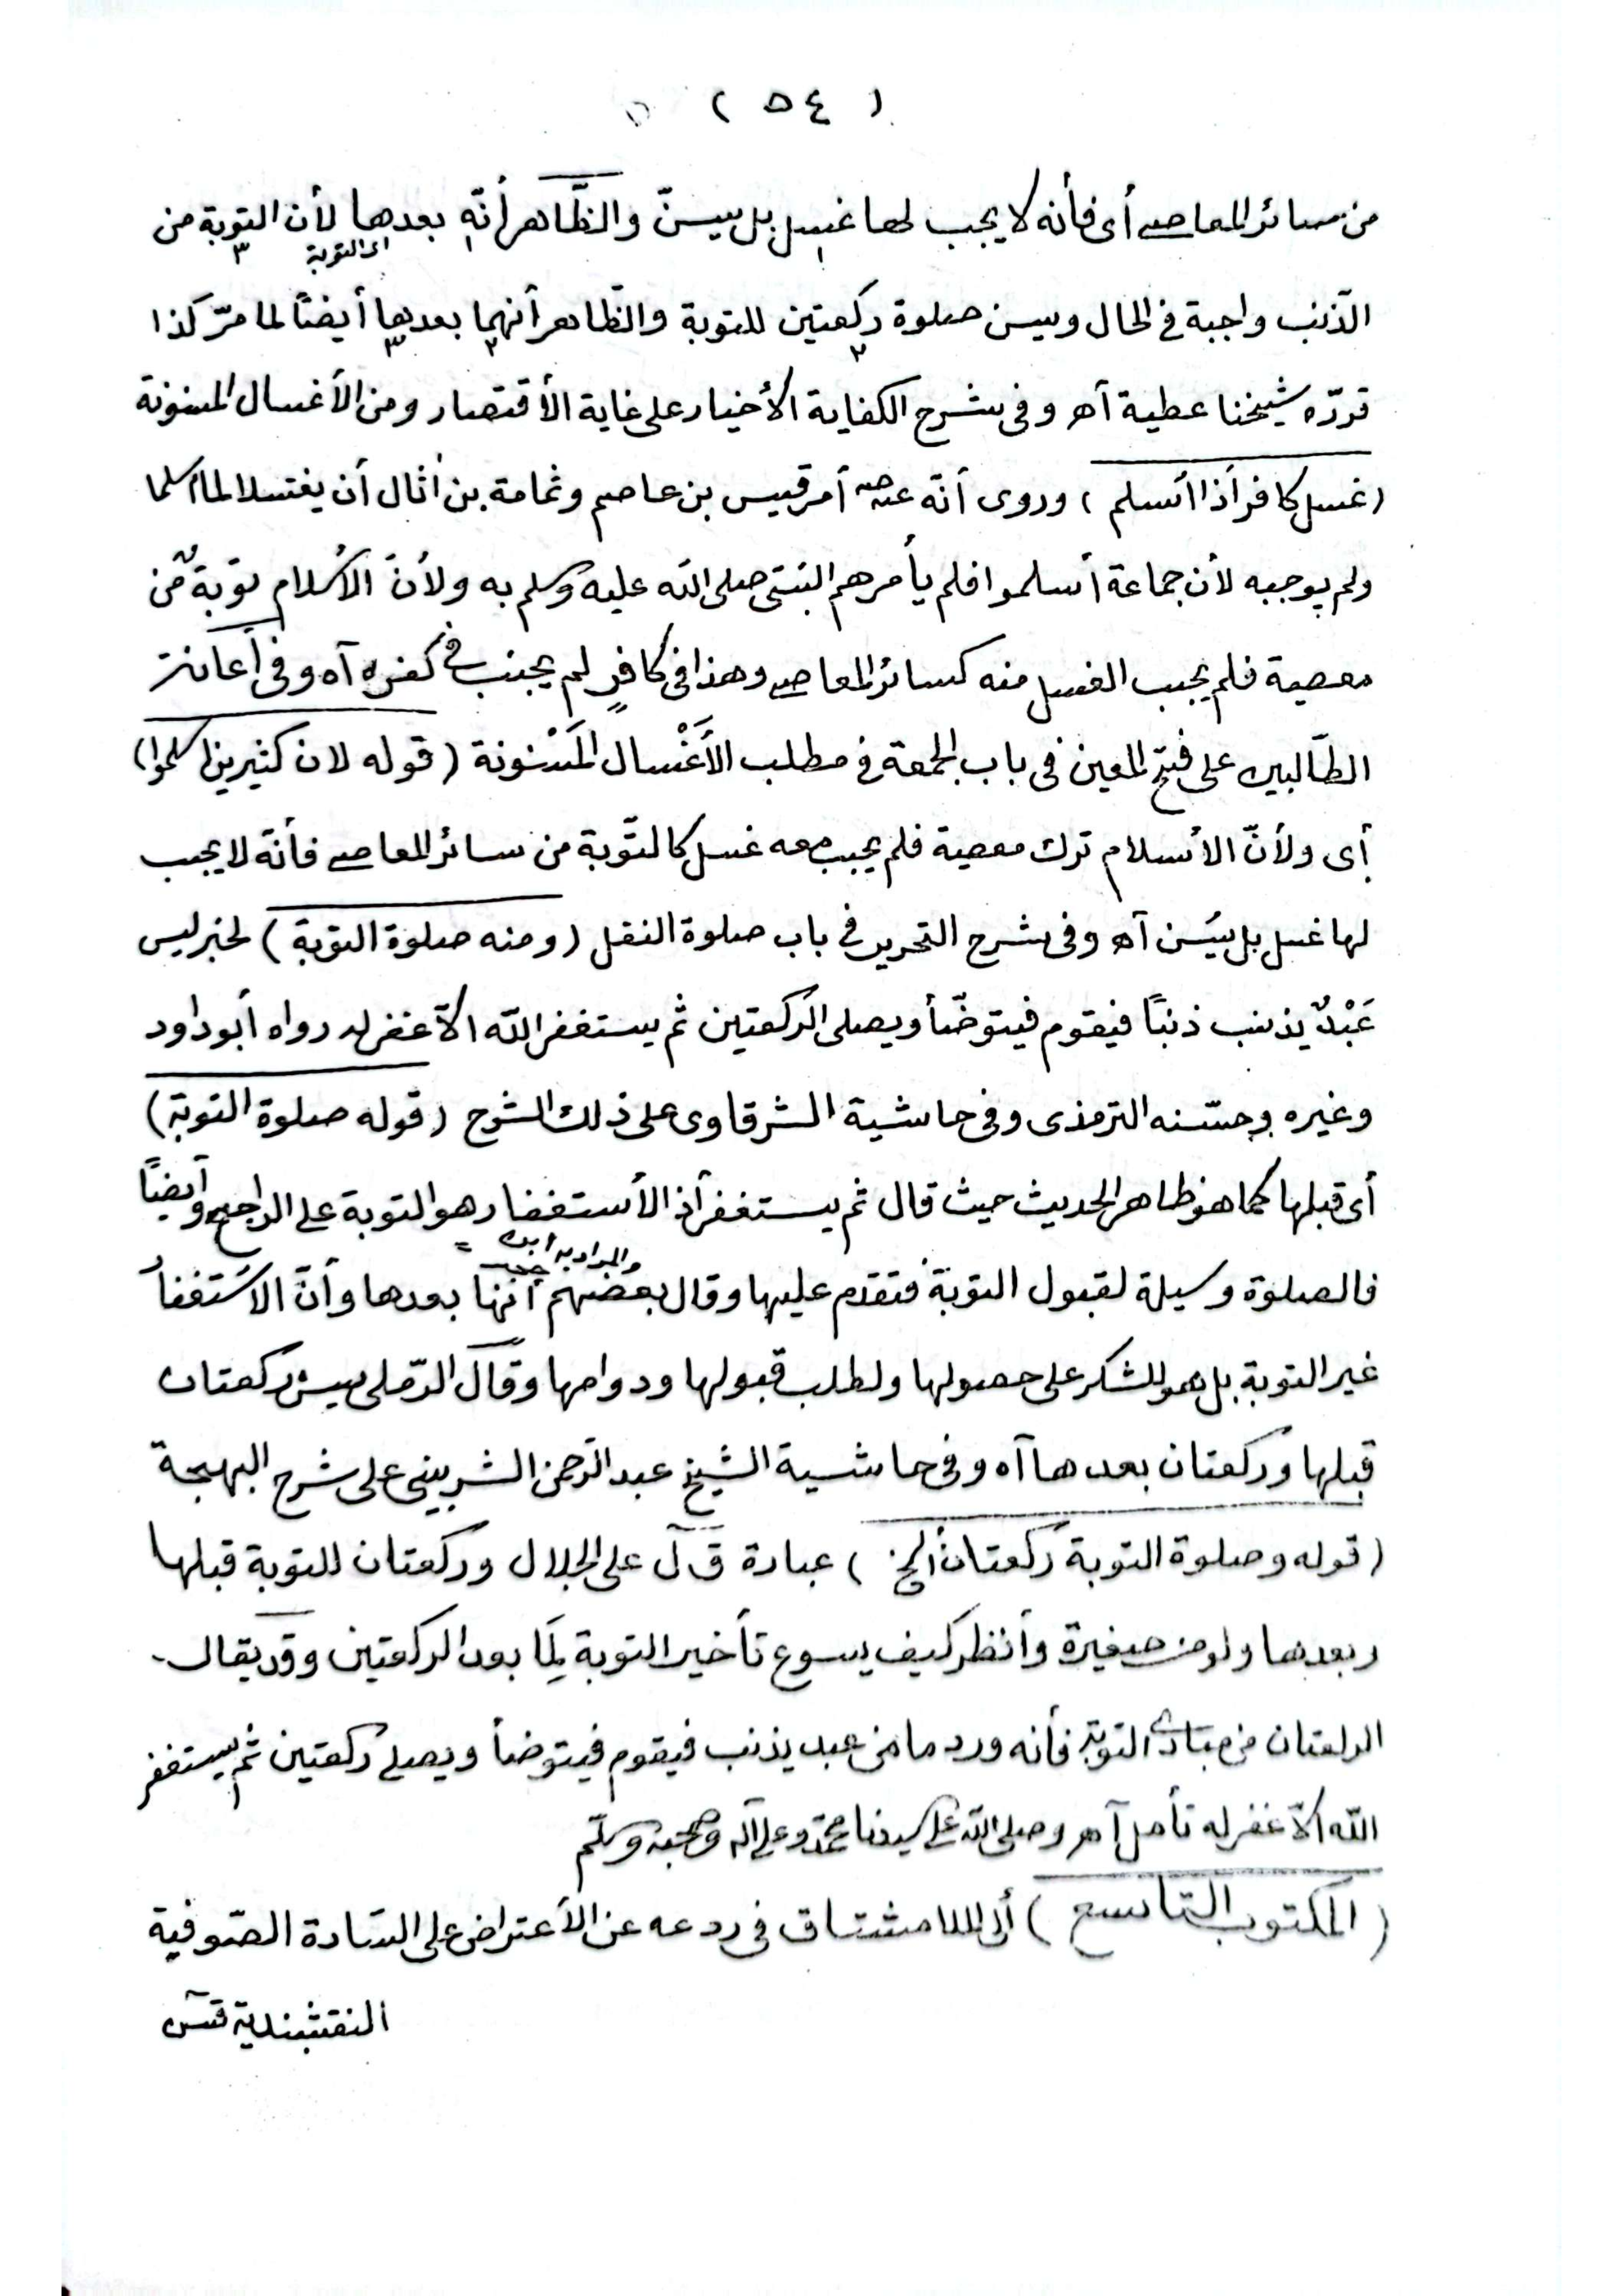 ( ٥٤ )
من سائر المعاصى أى فأنه لا يجب لها غسل بل يسنّ والظّاهر أنّه بعدها لأن التوبة من
اى التوبة
الذّنب واجبة فى الحال ويسن صلوة ركعتين للتوبة والظّاهر أنهما بعدها أيضًا لما مرّ كذا
قررّه شيخنا عطية آه وفى شرح الكفاية الأخيار على غاية الأقتصار ومن الأغسال المسنونة
(غسل كافر أذا أسلم) وروى أنّه عنه صه أمر قيس بن عاصم وثمامة بن أثال أن يغتسلا لما أسلما
ولم يوجبه لأن جماعة أسلموا فلم يأمرهم النبىّ صلى الله عليه وسلم به ولأنّ الأسلام توبةٌ من
معصية فلم يجب الغسل منه كسائر المعاصى وهذا فى كافرٍ لم يجنب فى كفره آه وفى أعانة
الطّالبين على فتح المعين فى باب الجمعة فى مطلب الأَغْسال المَسْنونة (قوله لان كثيرين اسلموا)
أى ولأنّ الأسلام ترك معصية فلم يجب معه غسل كالتّوبة من سائر المعاصى فأنّه لا يجب
لها غسل بل يُسَن آه وفى شرح التحرير فى باب صلوة النفل (ومنه صلوة التوبة) لخبر ليس
عَبْدٌ يذنب ذنبًا فيقوم فيتوضّأ ويصلى الركعتين ثم يستغفر الله الاّ غفر له رواه أبو داود
وغيره وحسّنه الترمذى وفى حاشية الشرقاوى على ذلك الشرح (قوله صلوة التوبة)
أى قبلها كما هو ظاهر الحديث حيث قال ثم يستغفر أذ الأستغفار هو التوبة على الراجح وأيضًا
فالصلوة وسيلة لقبول التوبة فتقدم عليها وقال بعضهم أنها بعدها وأنّ الاسْتغفار
والمراد به ابن حجر
غير التوبة بل هو للشكر على حصولها ولطلب قبولها ودوامها وقال الرّملى يسن ركعتان
قبلها وركعتان بعدها آه وفى حاشية الشيخ عبد الرّحمن الشربينى على شرح البهجة
(قوله وصلوة التوبة ركعتان ألخ) عبارة ق ل على الجلال وركعتان للتوبة قبلها
وبعدها ولو من صغيرة وأنظر كيف يسوع تأخير التوبة لِمَا بعد الركعتين وقد يقال
الركعتان من مبادى التوبة فأنه ورد ما من عبد يذنب فيقوم فيتوضأ ويصلى ركعتين ثم يستغفر
الله الاّ غفر له تأمل آه وصلى الله على سيدنا محمّد وعلى آله وصحبه وسلّم
(المكتوب التاسع) ألى الملا مشتاق فى ردعه عن الأعتراض على السّادة الصّوفية
النقشبندية قس